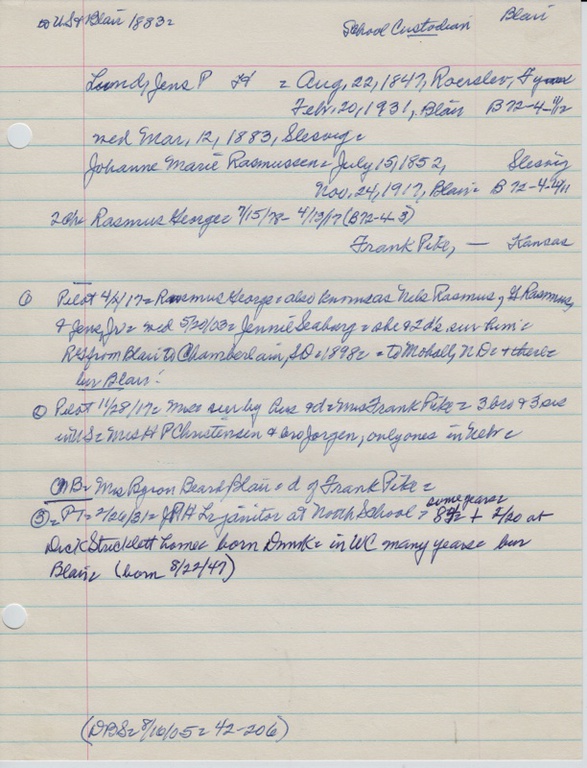 to US & Blair 1883=
School Custodian
Blair
Lund, Jens P = Aug, 22, 1847, Roerslev, Fyn
Febr, 20, 1931, Blair B 72-4-
med Mar, 12, 1883, Slesvig=
Johanne Marie Rasmussen= July 15, 1852, Slesvig
Nov, 24, 1917, Blair= B 72-4-
2 ch= Rasmus George= 7/15/78- 4/13/17 (B72-4-3)
Frank Pike, — Kansas
① Pilot 4/ /17= Rasmus George= also known as Nels Rasmus, G Rasmus,
& Jens, Jr= md 5/20/03= Jennie Seaborg= she & 2 d's sur him=
R's from Blair to Chamberlain, SD= 1898= = to Mohall, N D= & there=
bur Blair!
② Pilot 11/28/17= Mrs sur by hus & d= Mrs Frank Pike= 3 bro & 3 sis
in US= Mrs H P Christensen & bro Jorgen, only ones in Nebr=
NB= Mrs Byron Beard, Blair= d of Frank Pike=
③= PT= 2/26/31= J P H L= janitor at North School= some years=
83 1/2 + 2/20 at
Dick Stricklett home= born Dnmk= in WC many years= bur
Blair= (born 8/22/47)
(DBS= 8/10/05= 42-206)